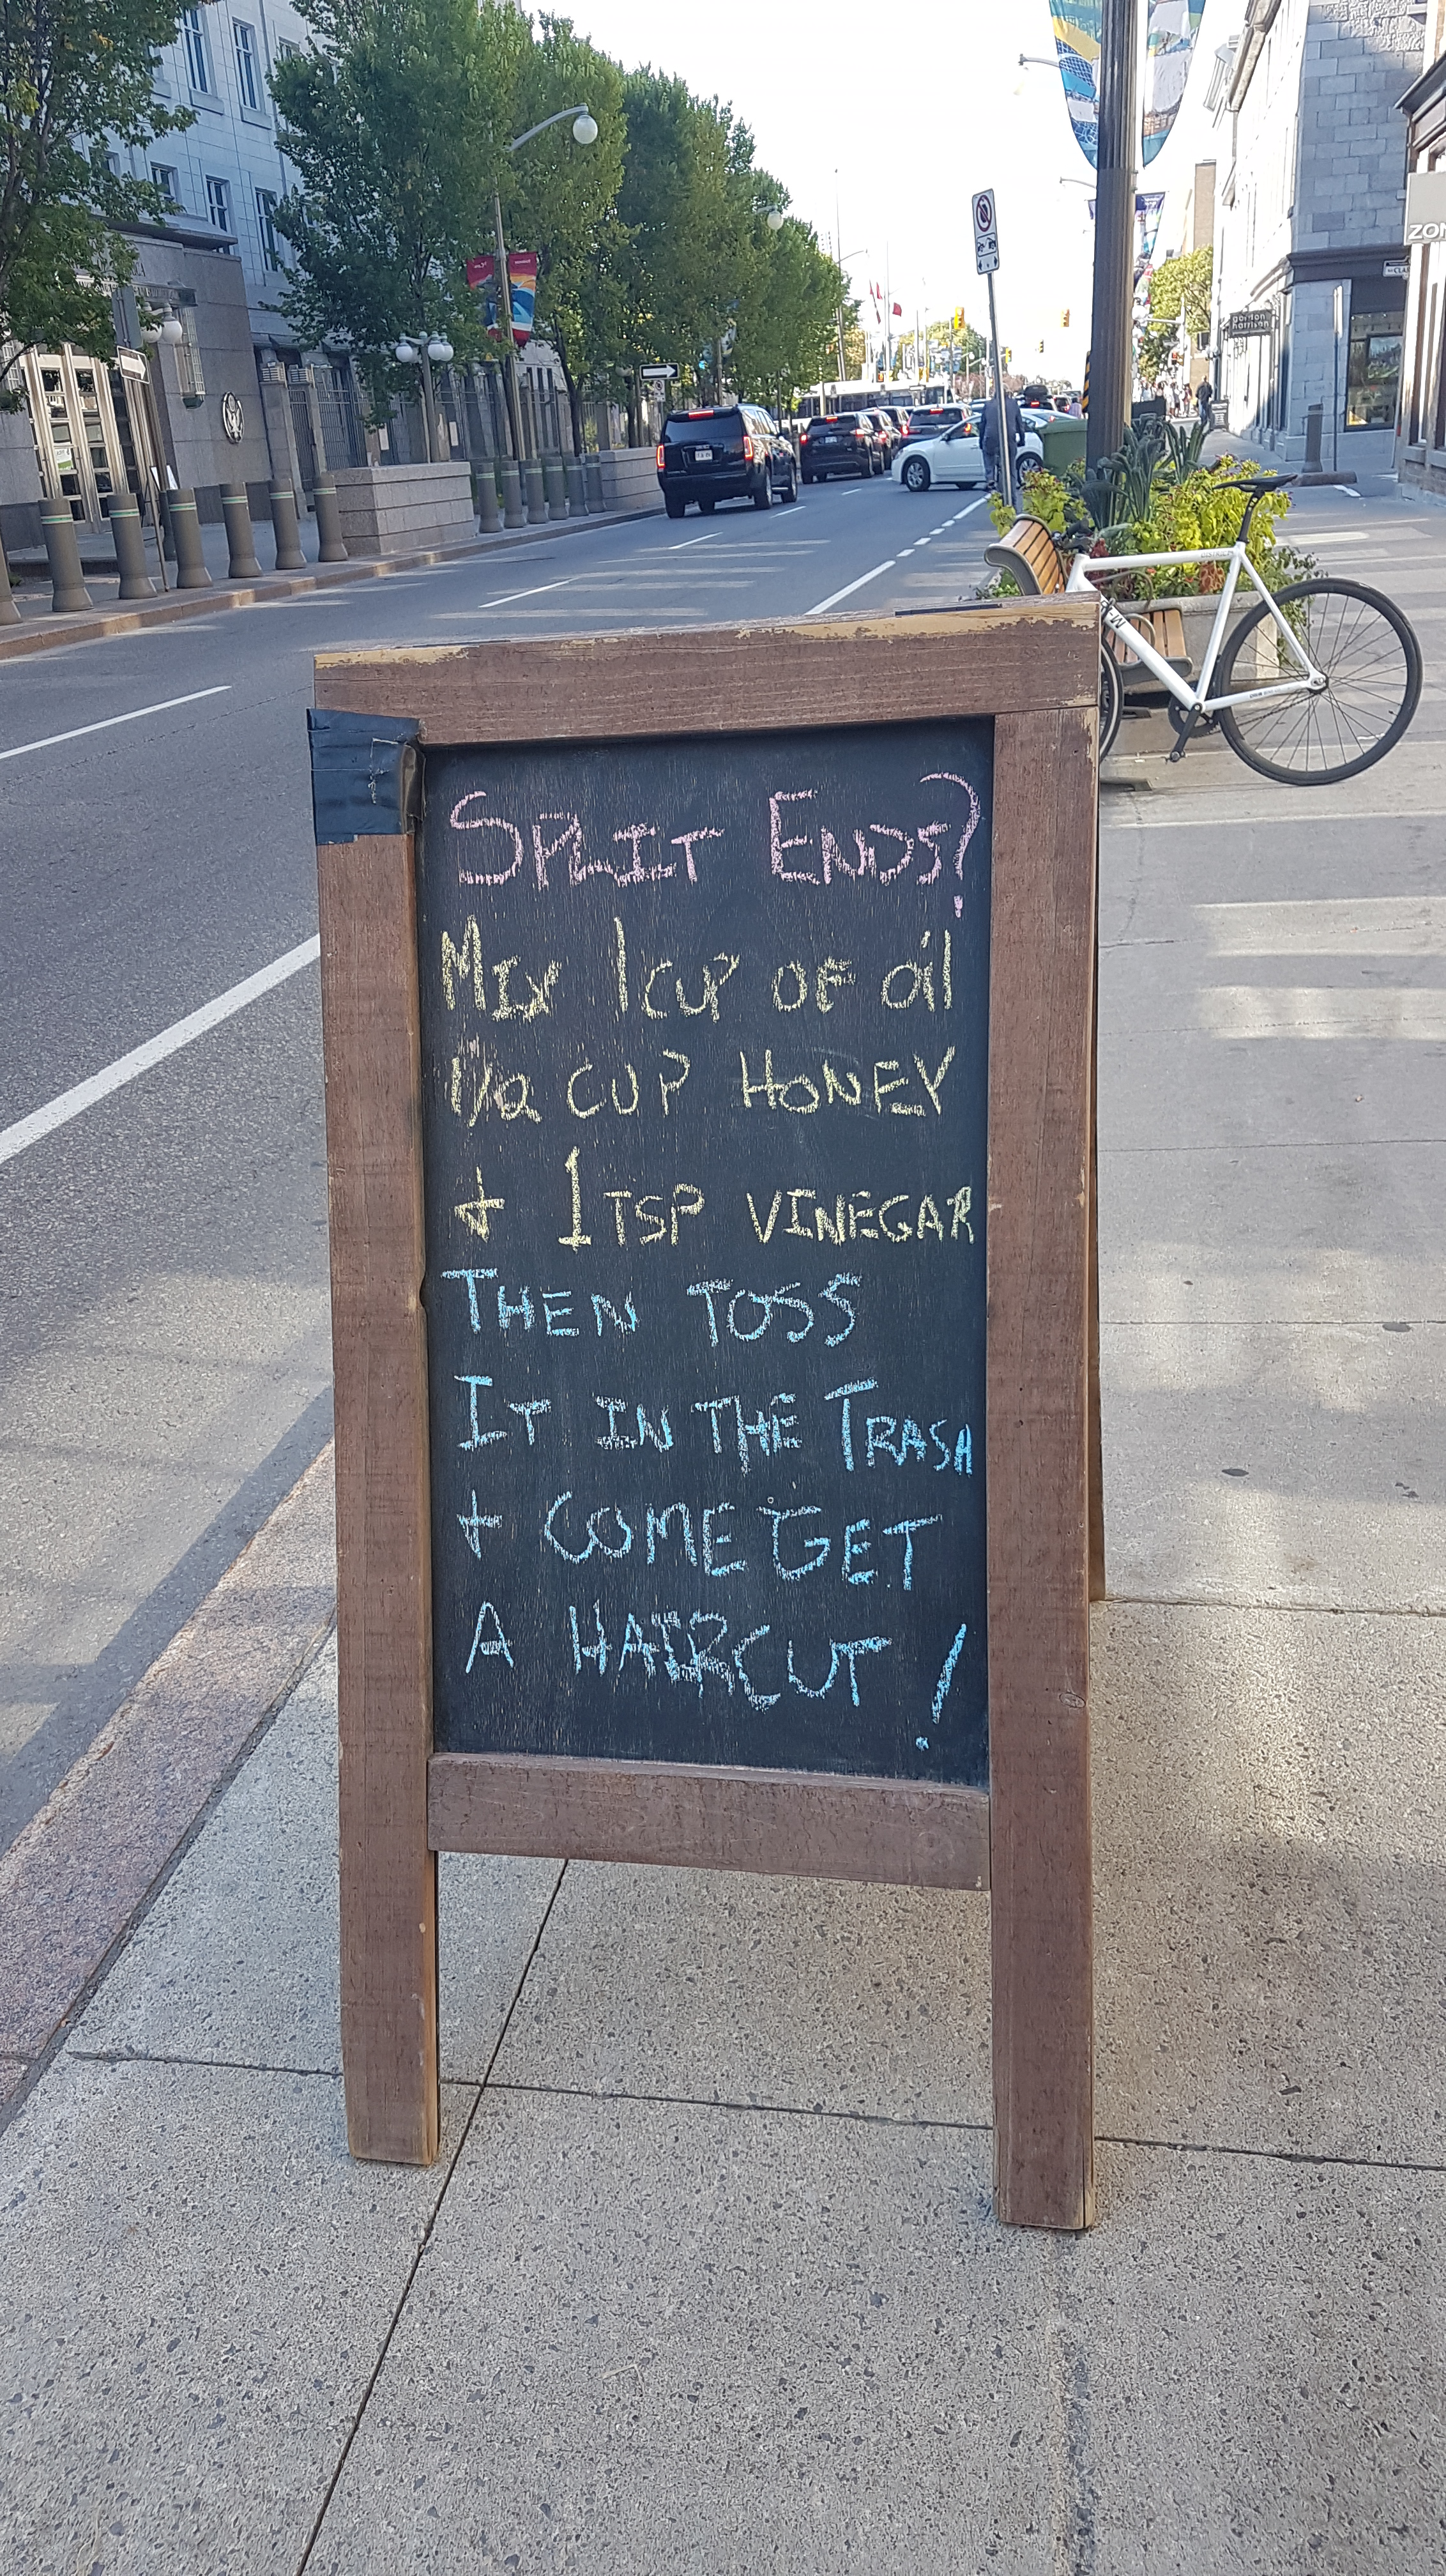 SPLIT ENDS?
MIX 1 CUP OF oil
1/2 CUP HONEY
+ 1 TSP VINEGAR
THEN TOSS
IT IN THE TRASH
+ COME GET
A HAIRCUT!
ZON
gordon
harrison